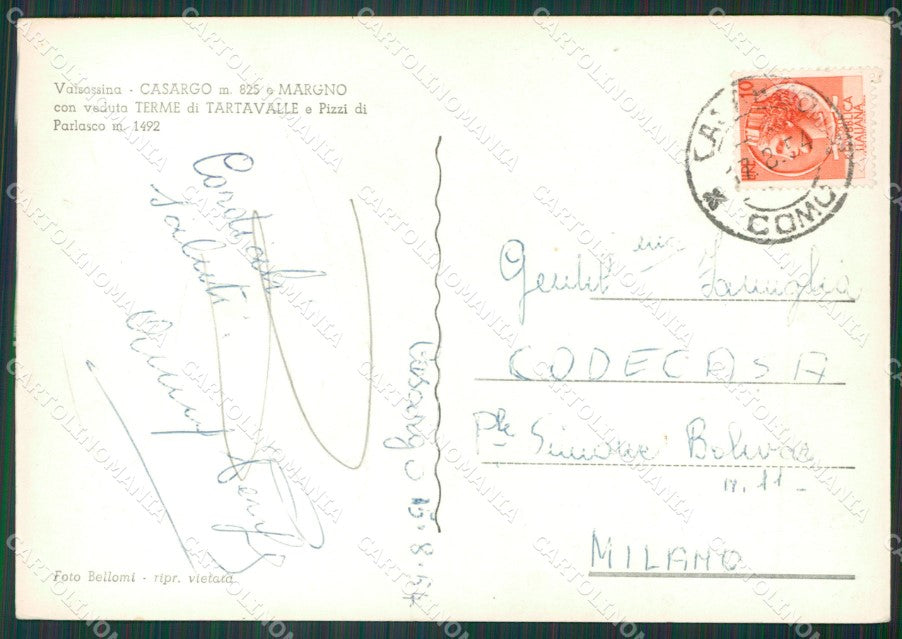 Valsassina - CASARGO m. 825 e MARGNO
con veduta TERME di TARTAVALLE e Pizzi di
Parlasco m. 1492
Cordiali
saluti
Casargo 15.8.54
Foto Bellomi - ripr. vietata
CASARGO
8.54
COMO
REPUBBLICA
ITALIANA
LIRE 10
Gentil ma Famiglia
CODECASA
P.le Simone Bolivar
n. 11 -
MILANO
CARTOLINOMANIA